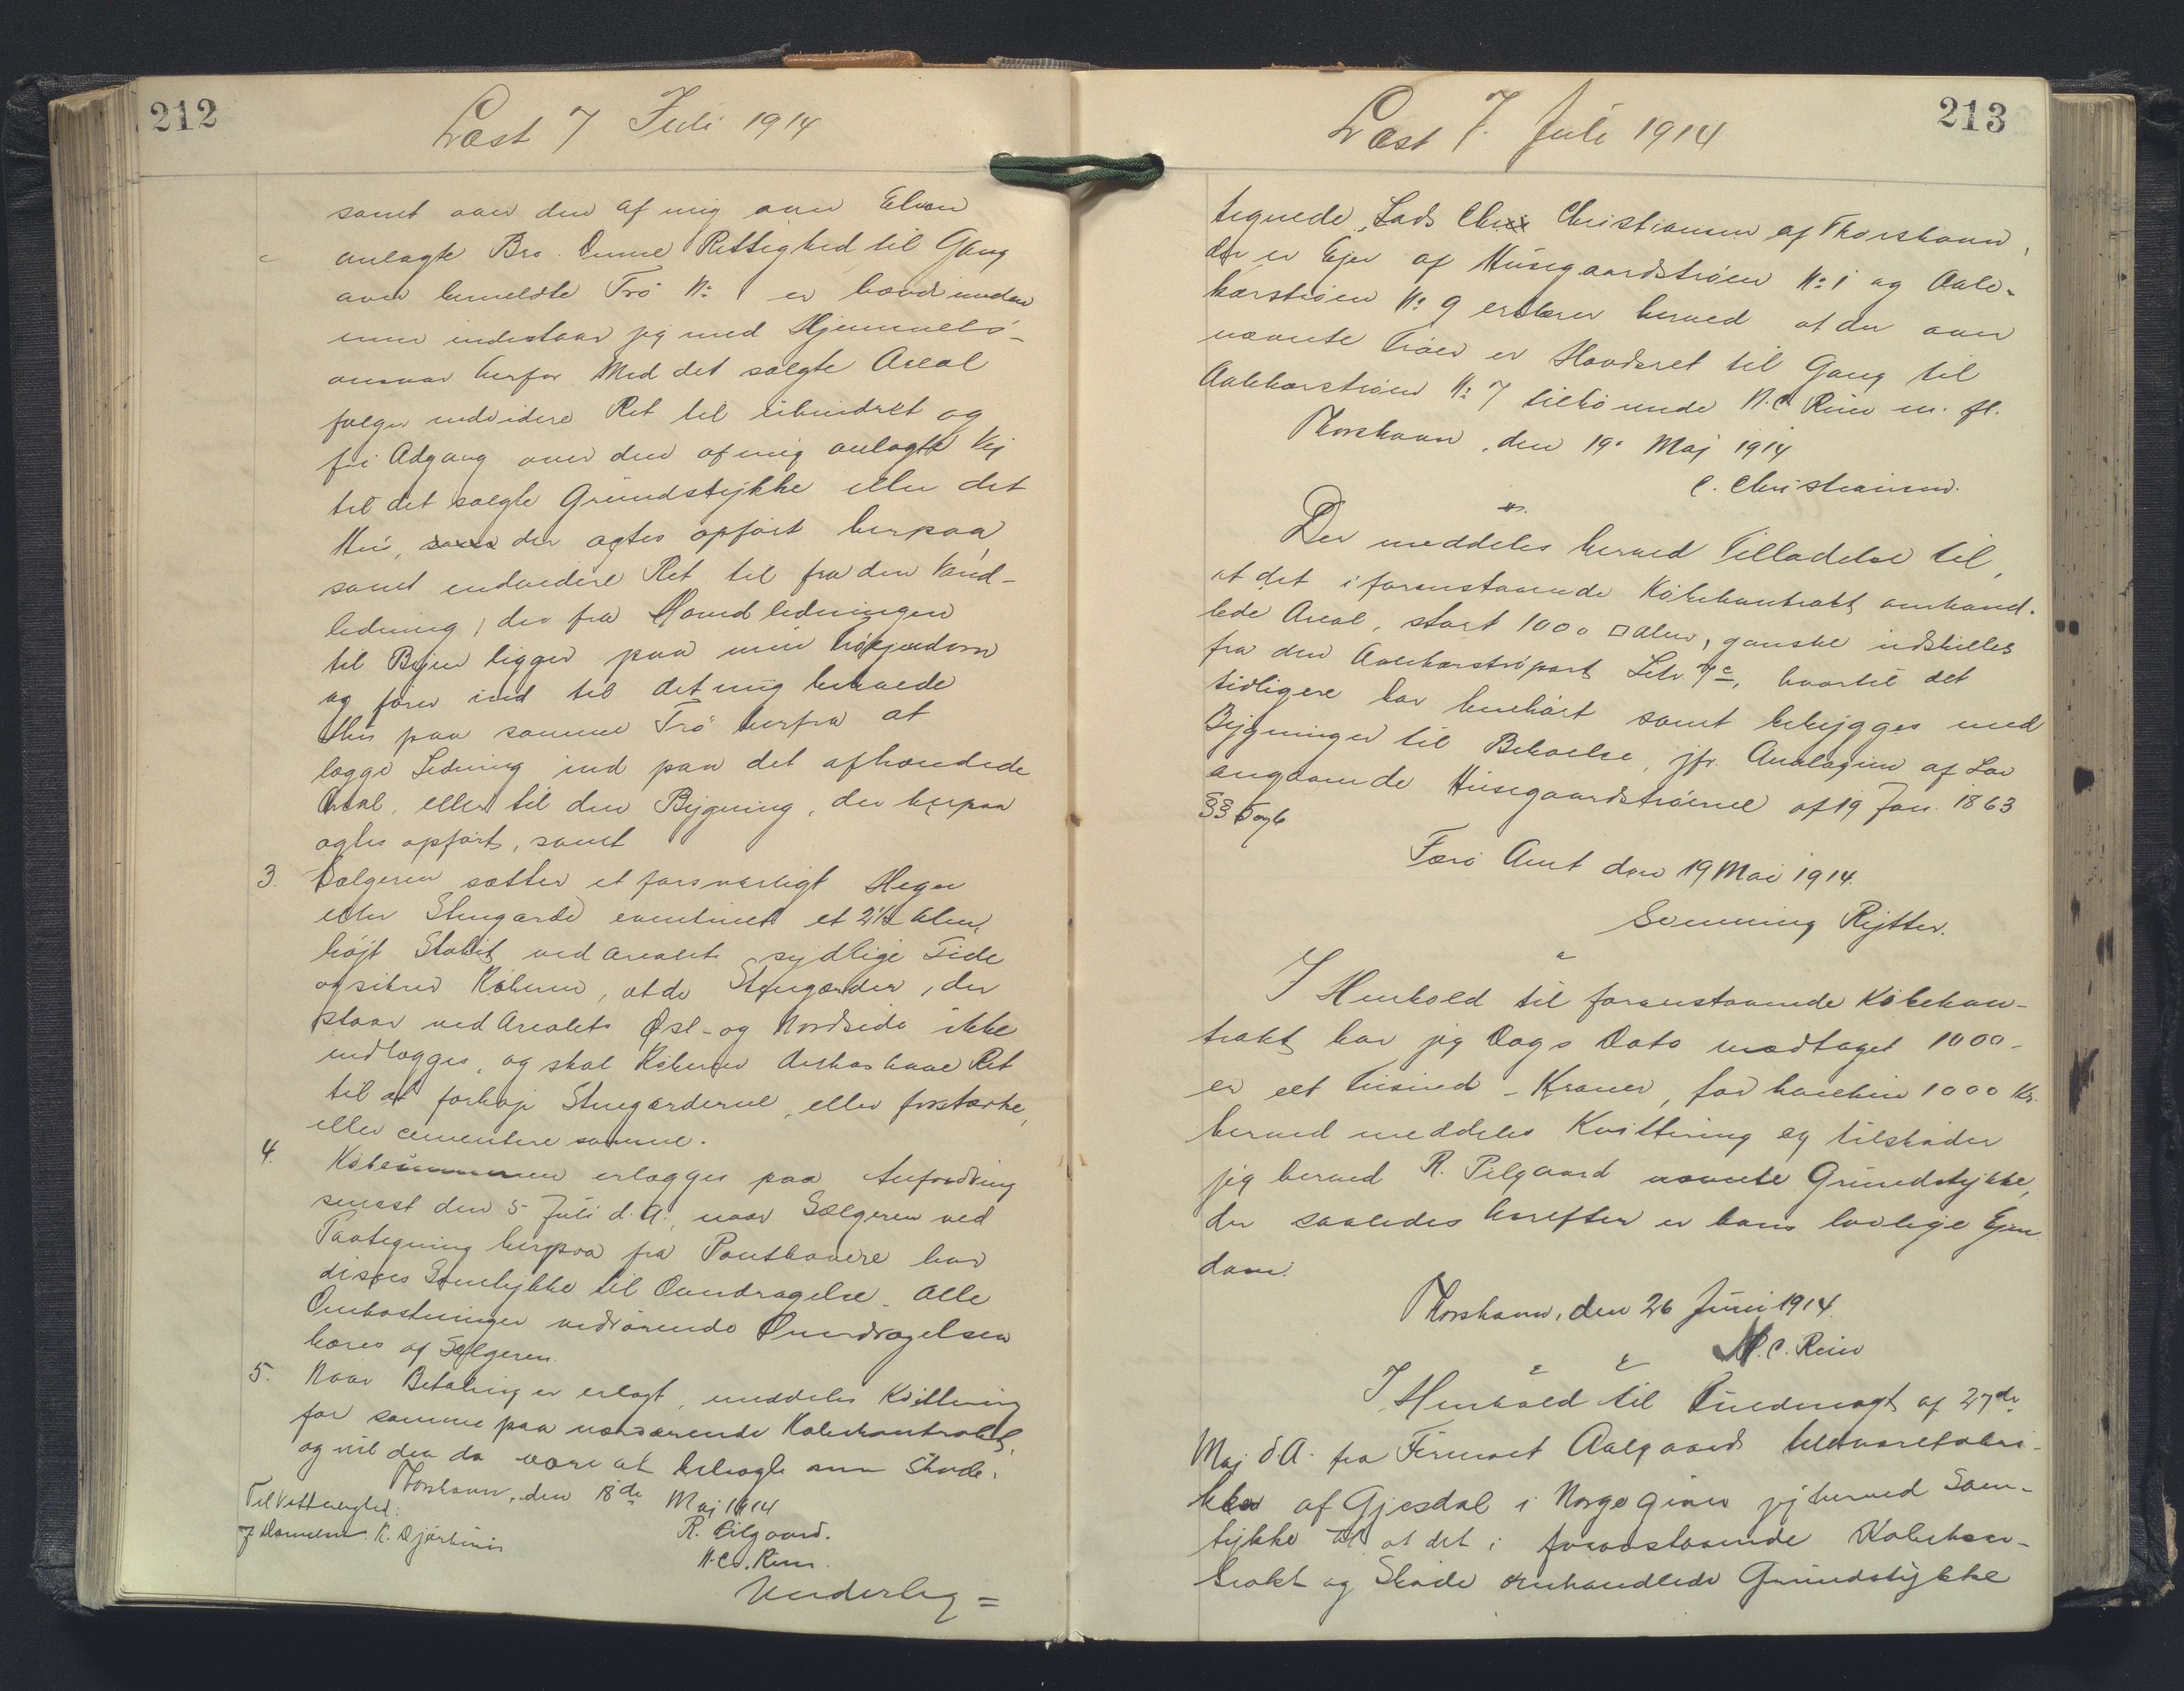 212
Læst 7 Juli 1914
samt over den af mig over Elven
anlagte Bro. Denne Rettighed til Gang
over bemeldte Trö No 1 er hævdvunden
men indestaar jeg med Hjemmels-
ansvar herfor. Med det solgte Areal
følger endvidere Ret til uhindret og
fri Adgang over den af mig anlagte Vej
til det solgte Grundstykke eller det
Hus, der agtes opført herpaa,
samt endvidere Ret til fra den Vand-
ledning, der fra Hovedledningen
til Byen ligger paa min Tröejendom
og fører ind til det mig tilhørende
Hus paa samme Trö herfra at
lægge Ledning ind paa det afhændede
Areal, eller til den Bygning, der herpaa
agtes opført, samt
3. Sælgeren sætter et forsvarligt Hegn
eller Stengærde eventuelt et 2½ Alen
højt Stakit ved Arealets sydlige Side
og sikrer Køberen, at de Stengærder, der
staar ved Arealets Øst- og Nordside ikke
nedlægges, og skal Køberen derhos have Ret
til at forhøje Stengærderne, eller forstærke,
eller cementere samme.
4. Købesummen erlægges paa Anfordring
senest den 5 Juli d. A., naar Sælgeren ved
Paategning herpaa fra Panthavere har
disses Samtykke til Overdragelse. Alle
Omkostninger vedrørende Overdragelsen
bæres af Sælgeren.
5. Naar Betaling er erlagt, meddeles Kvittering
for samme paa nærværende Købekontrakt,
og vil den da være at betragte som Skøde.
Thorshavn, den 18de Maj 1914
Til Vitterlighed: R. Pilgaard.
N. C. Rein.
Underteg=
213
Læst 7. Juli 1914
tegnede, Lads Christiansen af Thorshavn,
der er Ejer af Húsegaardströen No 1 og Aale-
kærströen No 9 erklærer herved at der over
nævnte Tröer er Hævdsret til Gang til
Aalekærströen No 7 tilhørende N. C. Rein m. fl.
Thorshavn, den 19. Maj 1914
C. Christiansen.
Der meddeles herved Tilladelse til,
at det i foranstaaende Købekontrakt omhand-
lede Areal, stort 1000 □ Alen, ganske udskilles
fra den Aalekærströpart Litr 7c, hvortil det
tidligere har henhørt samt bebygges med
Bygninger til Beboelse, jfr. Analogien af Lov
angaaende Húsegaardströerne af 19 Jan. 1863
§§ 5 og 6
Færø Amt den 19 Mai 1914.
Svenning Rytter.
I Henhold til foranstaaende Købekon-
trakt har jeg Dags Dato modtaget 1000-
er eet Tusind - Kroner, for hvilken 1000 Kr.
herved meddeles Kvittering og tilskøder
jeg herved R. Pilgaard nævnte Grundstykke,
der saaledes herefter er hans lovlige Ejen-
dom.
Thorshavn, den 26 Juni 1914.
N. C. Rein
I Henhold til Fuldmagt af 27de
Maj d. A. fra Firmaet Aalgaards Uldvarefabri-
kker af Gjesdal i Norge giver jeg herved Sam-
tykke til at det i foranstaaende Købekon-
trakt og Skøde omhandlede Grundstykke